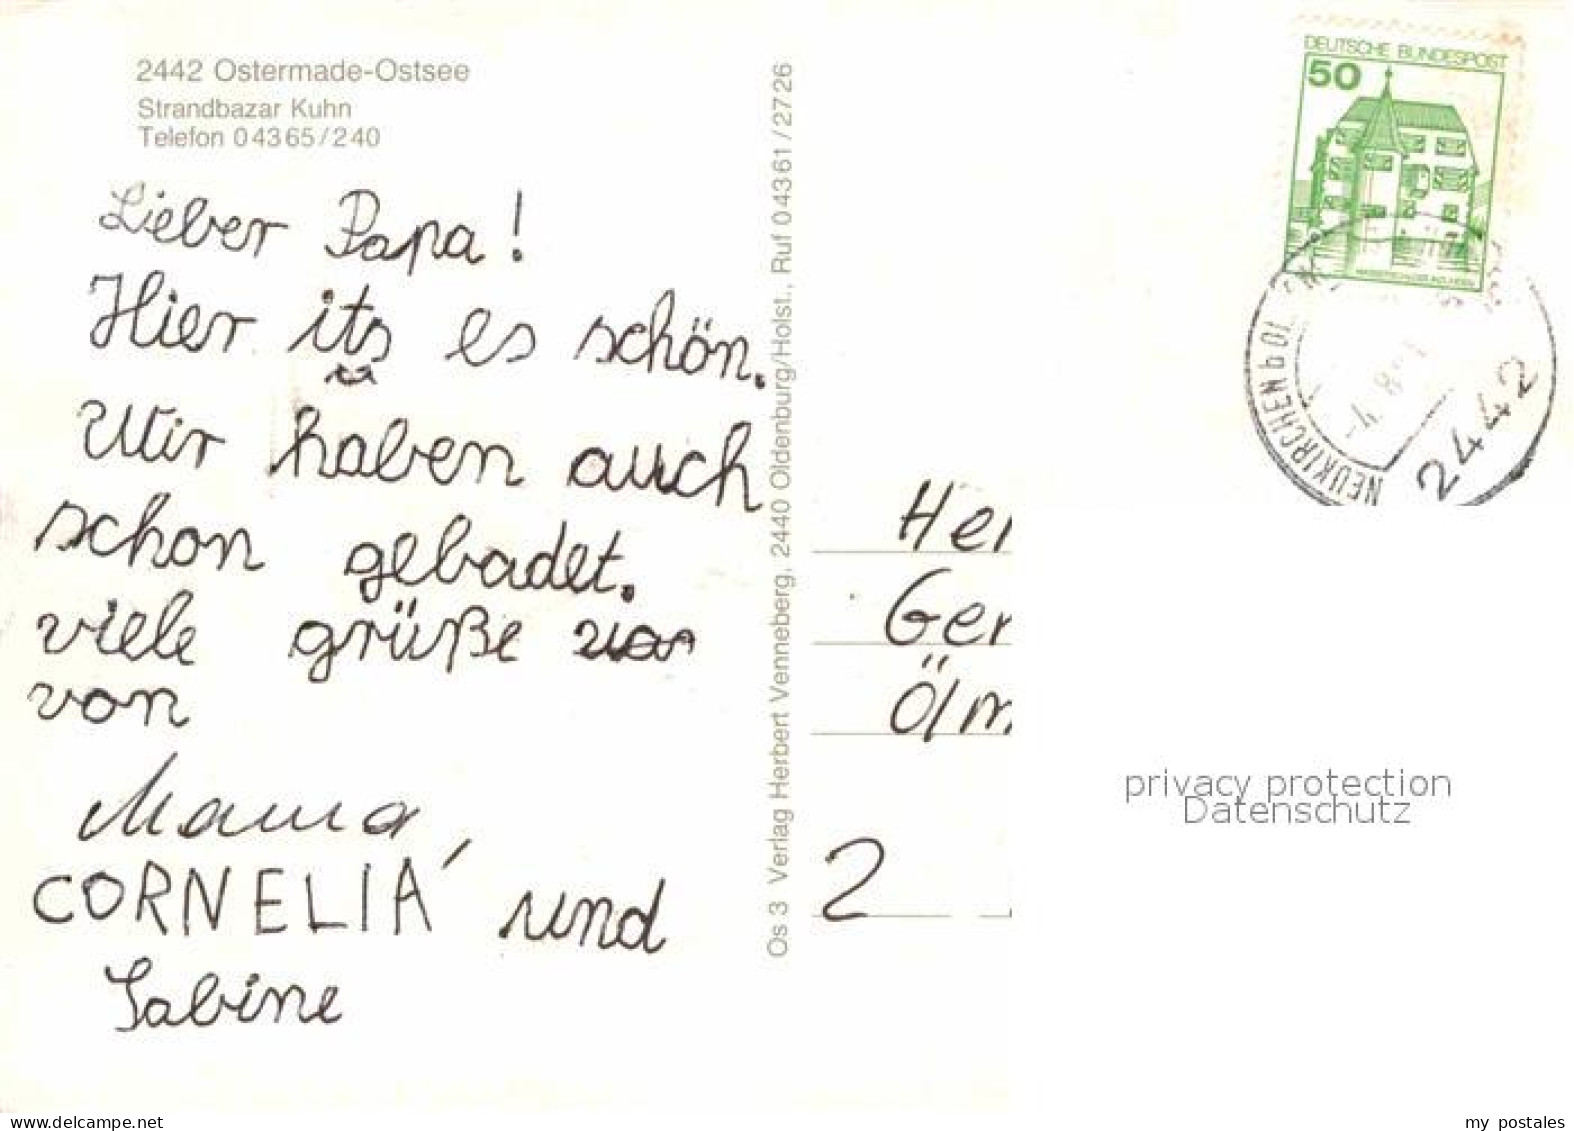 2442 Ostermade-Ostsee
Strandbazar Kuhn
Telefon 04365/240
Lieber Papa!
Hier its es schön.
Wir haben auch
schon gebadet.
viele grüße
von
Mama,
CORNELIA und
Sabine
Os 3 Verlag Herbert Venneberg, 2440 Oldenburg/Holst., Ruf 04361/2726
DEUTSCHE BUNDESPOST
50
NEUKIRCHEN b Ol
2442
Her
Ger
Ölm
2
privacy protection
Datenschutz
delcampe.net
my postales